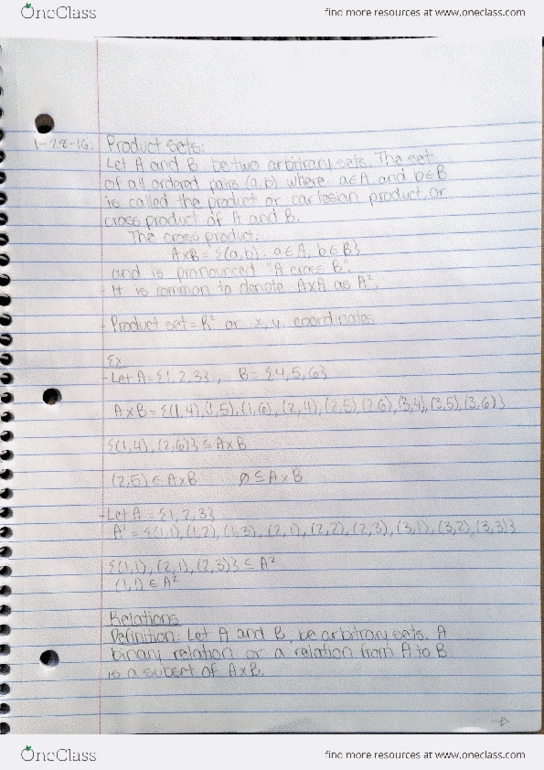 OneClass
find more resources at www.oneclass.com
1-28-16. Product Sets:
Let A and B be two arbitrary sets. The set
of all ordered pairs (a,b) where a∈A and b∈B
is called the product or cartesian product, or
cross product of A and B.
The cross product:
A×B = {(a,b) : a∈A, b∈B}
and is pronounced "A cross B".
- It is common to denote A×A as A².
- Product set = R² or x, y, coordinates
Ex.
- Let A = {1,2,3}, B = {4,5,6}
A×B = {(1,4),(1,5),(1,6),(2,4),(2,5)(2,6),(3,4),(3,5),(3,6)}
{(1,4), (2,6)} ⊆ A×B
(2,5) ∈ A×B ∅ ⊆ A×B
- Let A = {1,2,3}
A² = {(1,1), (1,2), (1,3), (2,1), (2,2), (2,3), (3,1), (3,2), (3,3)}
{(1,1), (2,1), (2,3)} ⊆ A²
(1,1) ∈ A²
Relations
Definition: Let A and B, be arbitrary sets. A
binary relation or a relation from A to B
is a subset of A×B.
OneClass
find more resources at www.oneclass.com